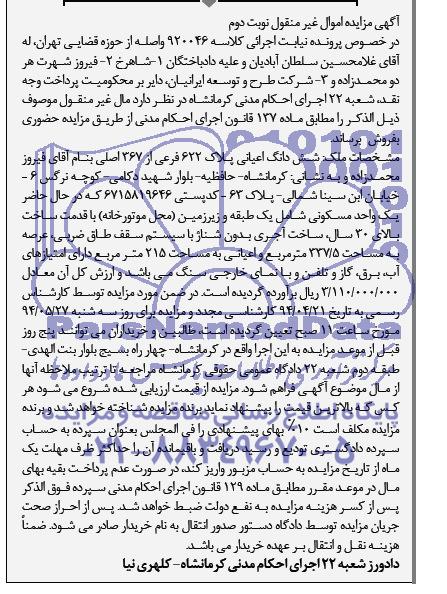 آگهی مزایده اموال غیر منقول نوبت دوم
در خصوص پرونده نیابت اجرائی کلاسه ۹۲۰۰۴۶ واصله از حوزه قضایی تهران، له
آقای غلامحسین سلطان آبادیان و علیه دادباختگان ۱-شاهرخ ۲- فیروز شهرت هر
دو محمدزاده و ۳- شرکت طرح و توسعه ایرانیان، دایر بر محکومیت پرداخت وجه
نقد، شعبه ۲۲ اجرای احکام مدنی کرمانشاه در نظر دارد مال غیر منقول موصوف
ذیل الذکر را مطابق ماده ۱۳۷ قانون اجرای احکام مدنی از طریق مزایده حضوری
بفروش برساند.
مشخصات ملک: شش دانگ اعیانی پلاک ۶۲۲ فرعی از ۳۶۷ اصلی بنام آقای فیروز
محمدزاده و به نشانی: کرمانشاه- حافظیه- بلوار شهید دکامی- کوچه نرگس ۶ -
خیابان ابن سینا شمالی- پلاک ۶۳ - کدپستی ۶۷۱۵۸۱۹۶۴۶ که در حال حاضر
یک واحد مسکونی شامل یک طبقه و زیرزمین (محل موتورخانه) با قدمت ساخت
بالای ۳۰ سال، ساخت آجری بدون شناژ با سیستم سقف طاق ضربی، عرصه
به مساحت ۳۳۷/۵ مترمربع و اعیانی به مساحت ۲۱۵ متر مربع دارای امتیازهای
آب، برق، گاز و تلفن و با نمای خارجی سنگ می باشد و ارزش کل آن معادل
۳/۱۱۰/۰۰۰/۰۰۰ ریال برآورده گردیده است. در ضمن مورد مزایده توسط کارشناس
رسمی به تاریخ ۹۴/۰۴/۲۱ کارشناسی مجدد و مزایده برای روز سه شنبه ۹۴/۰۵/۲۷
مورخ ساعت ۱۱ صبح تعیین گردیده است. طالبین و خریداران می توانند پنج روز
قبل از موعد مزایده به این اجرا واقع در کرمانشاه- چهار راه بسیج بلوار بنت الهدی-
طبقه دوم شعبه ۲۲ دادگاه عمومی حقوقی کرمانشاه مراجعه تا ترتیب ملاحظه آنها
از مال موضوع آگهی فراهم شود. مزایده از قیمت ارزیابی شده شروع می شود. هر
کس که بالاترین قیمت را پیشنهاد نماید برنده مزایده شناخته خواهد شد و برنده
مزایده مکلف است ۱۰٪ بهای پیشنهادی را فی المجلس بعنوان سپرده به حساب
سپرده دادگستری تودیع و رسید دریافت و باقیمانده آن را حداکثر ظرف مهلت یک
ماه از تاریخ مزایده به حساب مزبور واریز کند، در صورت عدم پرداخت بقیه بهای
مال در موعد مقرر مطابق ماده ۱۲۹ قانون اجرای احکام مدنی سپرده فوق الذکر
پس از کسر هزینه مزایده به نفع دولت ضبط خواهد شد. پس از احراز صحت
جریان مزایده توسط دادگاه دستور صدور انتقال به نام خریدار صادر می شود. ضمناً
هزینه نقل و انتقال بر عهده خریدار می باشد.
دادورز شعبه ۲۲ اجرای احکام مدنی کرمانشاه- کلهری نیا